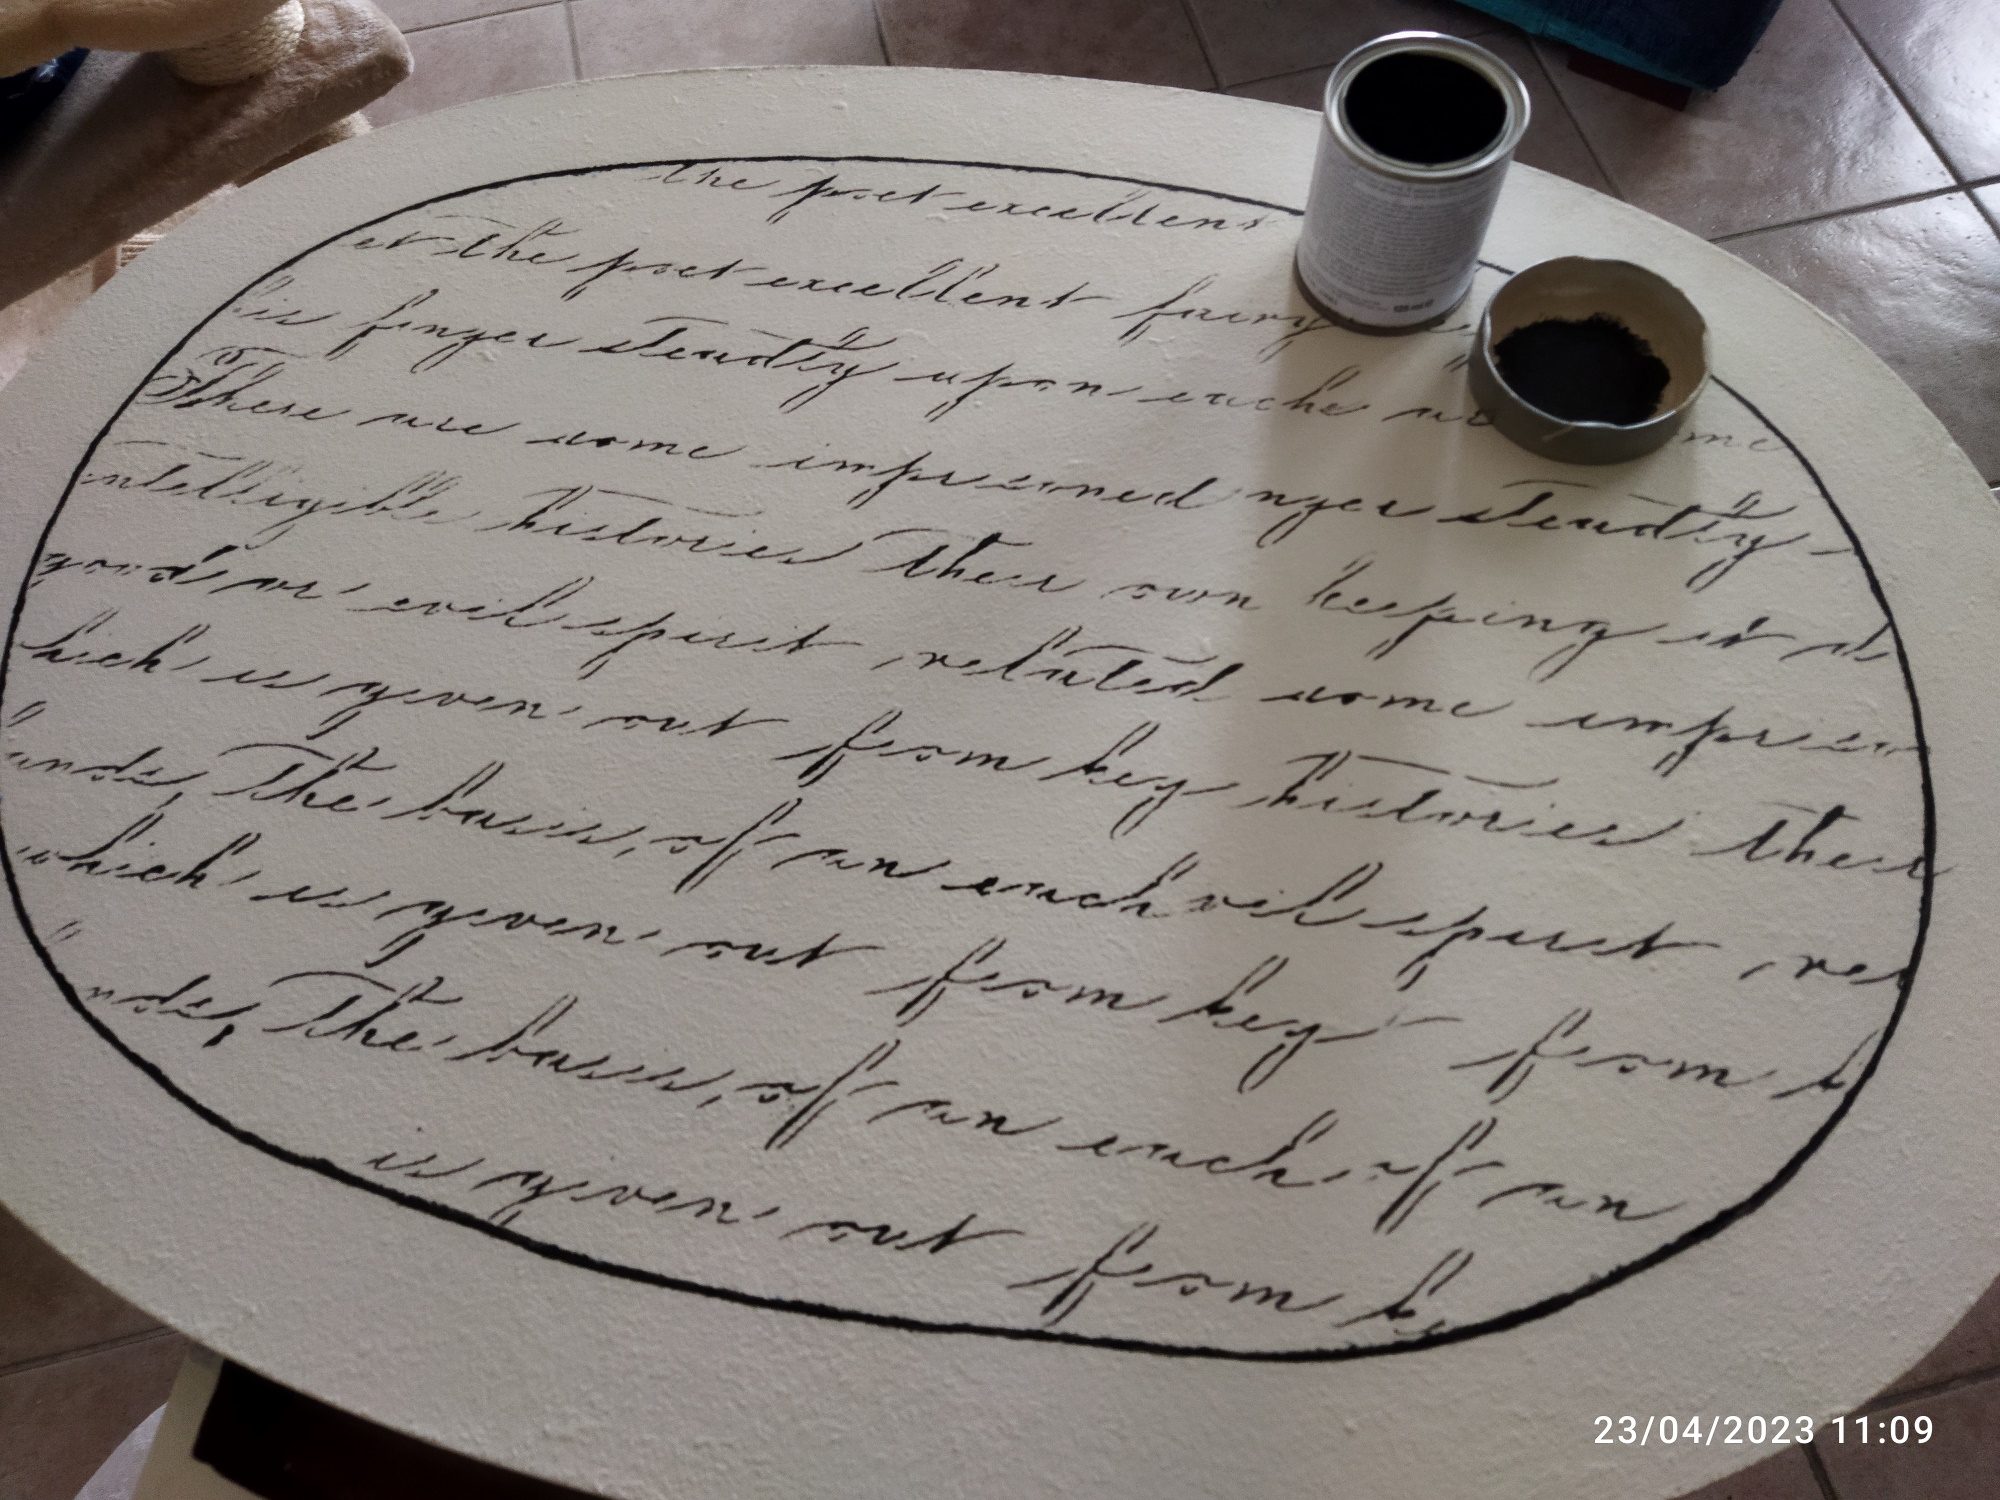 the poet excellent
er the poet excellent fairy
his finger steadty upon eache
There are some impresoned nger steadty
intelligible histories their own keeping it
good or evil spirit related some impreso
hich is given out from key histories their
ands, The basis, of an each vil spirit, rel
which is given out from key from k
nds, The basis, of an each of an
is given out from ke
23/04/2023 11:09